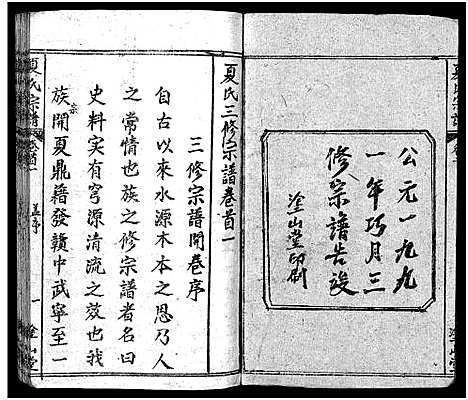 公元一九九
一年巧月三
修宗譜告竣
塗山堂印刷
夏氏三修宗譜卷首一
三修宗譜開卷序
自古以來水源木本之恩乃人
之常情也族之修宗譜者名曰
史料实有穹源清流之效也我
宗
族開夏鼎籍發贛中武寧至一
夏氏宗譜
卷首一
序
一
塗山堂